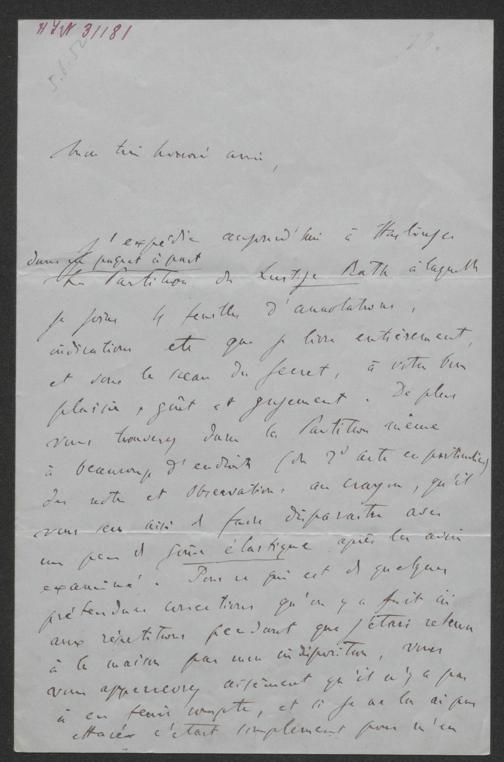 H.I.N. 31181
5.6.52
Mon très honoré ami,
J'expédie aujourd'hui à Haslinger
dans un paquet à part
La Partition du Lustige Rath à laquelle
je joins 4 feuilles d'annotations,
indications etc que je livre entièrement,
et sous le sceau du secret, à votre bon
plaisir, goût et jugement. De plus
vous trouverez dans la Partition même
à beaucoup d'endroits (du 2d acte en particulier)
des notes et observations au crayon, qu'il
vous sera aisé de faire disparaitre avec
un peu de gomme élastique après les avoir
examiné. Pour ce qui est de quelques
prétendues corrections qu'on y a fait ici
aux répétitions pendant que j'étais retenu
à la maison par mon indisposition, vous
vous appercevrez aisément qu'il n'y a pas
à en tenir compte, et si je ne les ai pas
effacées c'était simplement pour n'en